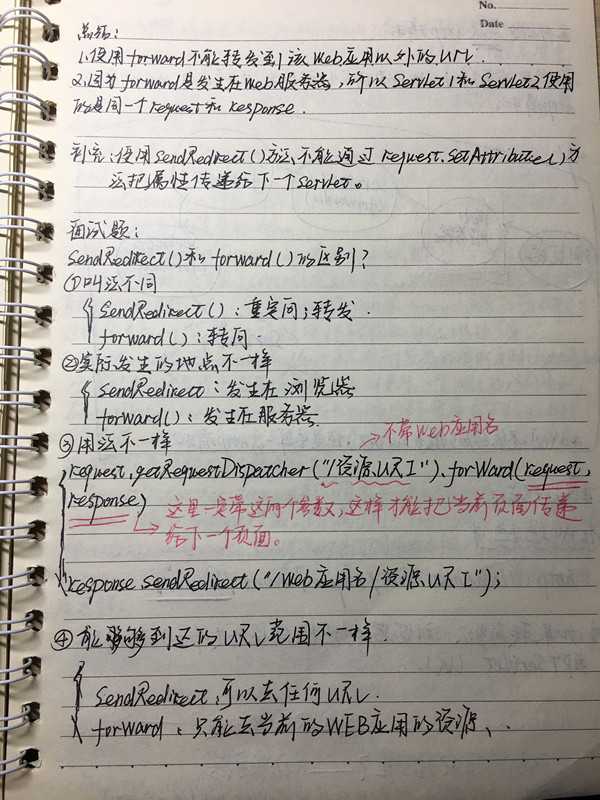 No.
Date
总结:
1.使用forward不能转发到该web应用以外的url.
2.因为forward是发生在web服务器,所以Servlet1和Servlet2使用
的是同一个request和response.
补充:使用SendRedirect()方法不能通过request.setAttribute()方
法把属性传递给下一个servlet。
面试题:
SendRedirect()和forward()的区别?
①叫法不同
SendRedirect():重定向;转发.
forward():转向.
②实际发生的地点不一样
SendRedirect:发生在浏览器
forward():发生在服务器
③用法不一样
不带web应用名
request.getRequestDispatcher("/资源URI").forward(request,
response)
这里一定带这两个参数,这样才能把当前页面传递
给下一个页面。
response.sendRedirect("/web应用名/资源URI");
④能够到达的URL范围不一样.
SendRedirect:可以去任何URL.
forward:只能去当前的WEB应用的资源、.